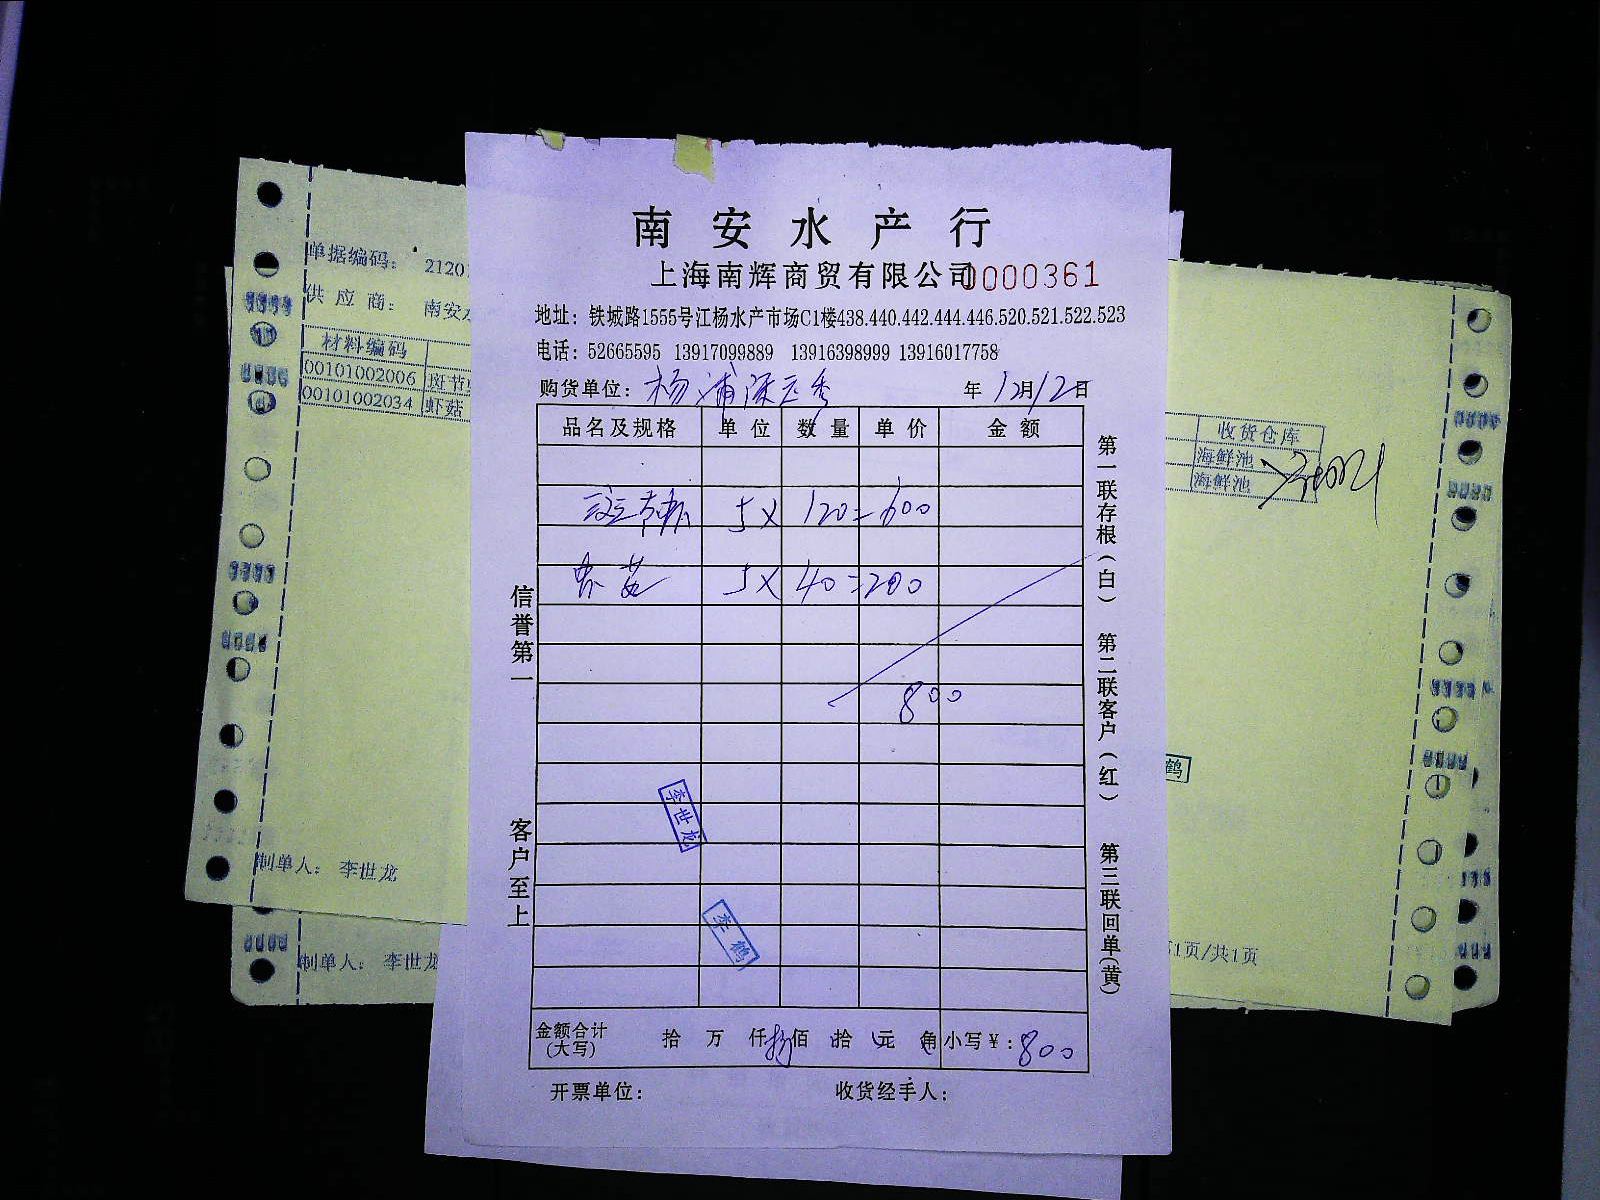 南安水产行
上海南辉商贸有限公司 0000361
地址：铁城路1555号江杨水产市场C1楼438.440.442.444.446.520.521.522.523
电话：52665595 13917099889 13916398999 13916017758
购货单位：杨浦 年12月12日
品名及规格 单位 数量 单价 金额
斑节虾 5× 120=600
虾菇 5× 40=200
800
李世龙
李鹤
金额合计(大写) 拾 万 仟 捌佰 拾 元 角 小写￥：800
开票单位： 收货经手人：
信誉第一 客户至上
第一联存根(白) 第二联客户(红) 第三联回单(黄)
单据编码： 2120
供应商： 南安
材料编码
00101002006 斑节
00101002034 虾菇
制单人： 李世龙
制单人： 李世龙
收货仓库
海鲜池
海鲜池
鹤
1页/共1页